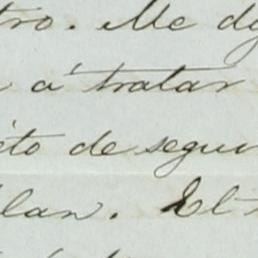 tro. Me dij
a á tratar
eto de segui
lan. El